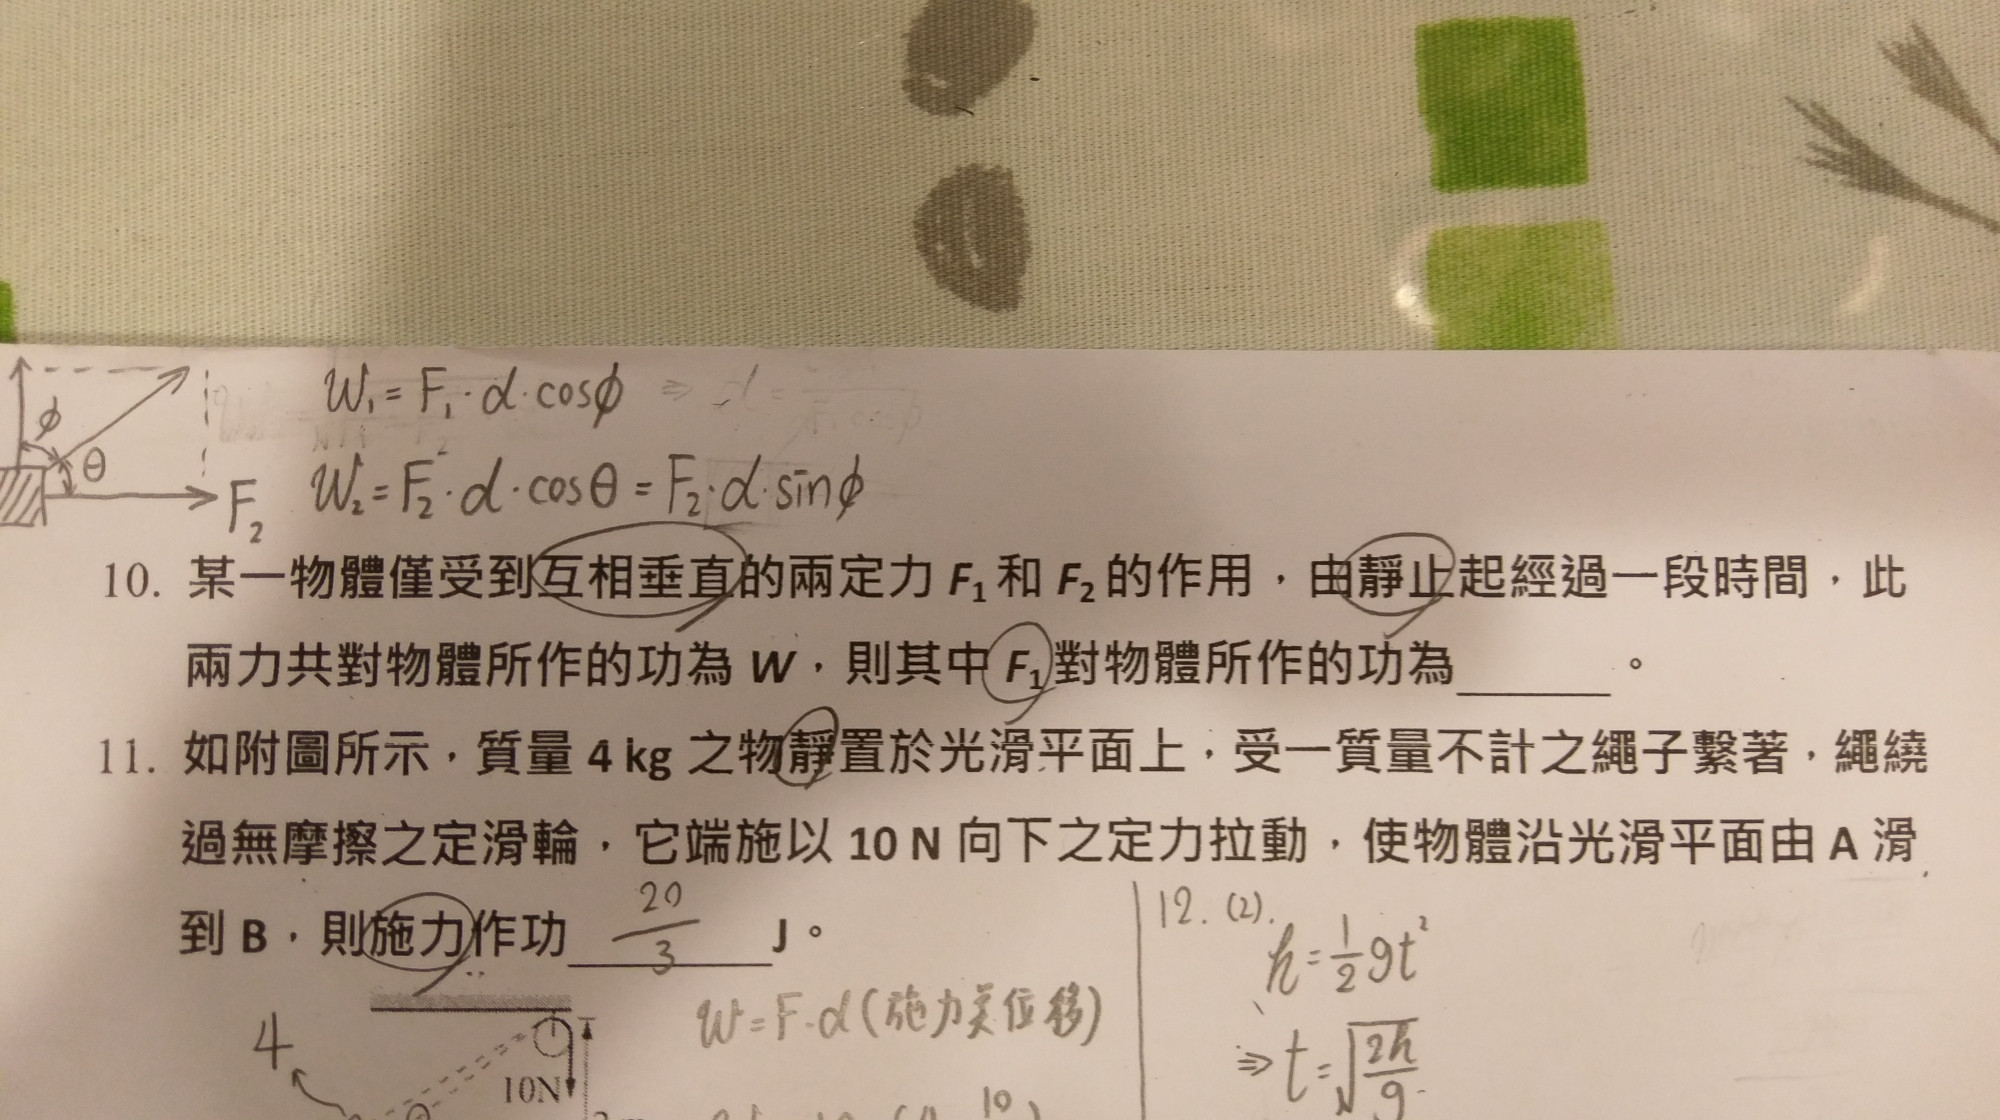 W₁=F₁·d·cosϕ ⇒ d=
W₂=F₂·d·cosθ=F₂·d·sinϕ
ϕ
θ
F₂
10. 某一物體僅受到互相垂直的兩定力 F₁ 和 F₂ 的作用，由靜止起經過一段時間，此
兩力共對物體所作的功為 W，則其中 F₁ 對物體所作的功為______。
11. 如附圖所示，質量 4 kg 之物靜置於光滑平面上，受一質量不計之繩子繫著，繩繞
過無摩擦之定滑輪，它端施以 10 N 向下之定力拉動，使物體沿光滑平面由 A 滑
到 B，則施力作功 20/3 J。
12. (2).
h=½gt²
W=F·d(施力英位移)
⇒t=√(2h/g)
4
10N
θ